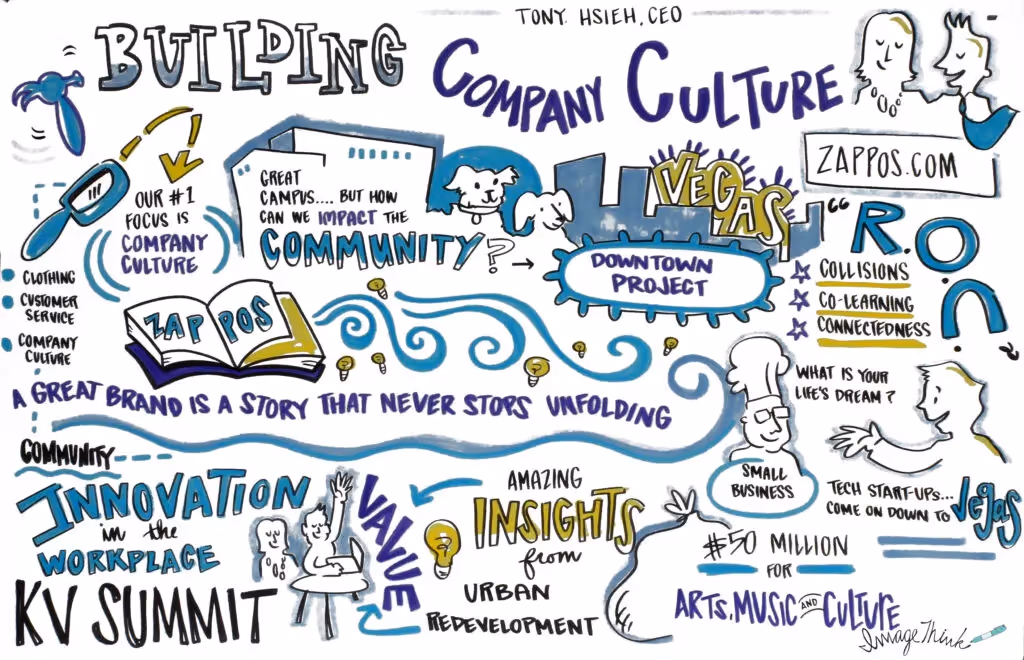 TONY HSIEH, CEO
BUILDING
COMPANY CULTURE
ZAPPOS.COM
OUR #1
FOCUS IS
COMPANY
CULTURE
GREAT
CAMPUS.... BUT HOW
CAN WE IMPACT THE
COMMUNITY?
VEGAS
DOWNTOWN
PROJECT
"R.O.C?
COLLISIONS
CO-LEARNING
CONNECTEDNESS
CLOTHING
CUSTOMER
SERVICE
COMPANY
CULTURE
COMMUNITY
ZAPPOS
A GREAT BRAND IS A STORY THAT NEVER STOPS UNFOLDING
WHAT IS YOUR
LIFE'S DREAM?
SMALL
BUSINESS
TECH START-UPS...
COME ON DOWN TO Vegas
INNOVATION
in the
WORKPLACE
KV SUMMIT
VALUE
AMAZING
INSIGHTS
from
URBAN
REDEVELOPMENT
$50 MILLION
FOR
ARTS, MUSIC AND CULTURE
ImageThink